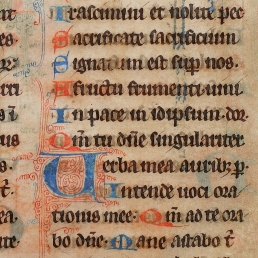 Irascimini et nolite pec
Sacrificate sacrificium
Signatum est sup nos.
A fructu frumenti vini
In pace in idipsum. dor.
Qm tu dñe singulariter
Verba mea auribz p.
Intende voci ora
tionis mee. Qm ad te ora
bo dñe. Mane astabo t̄